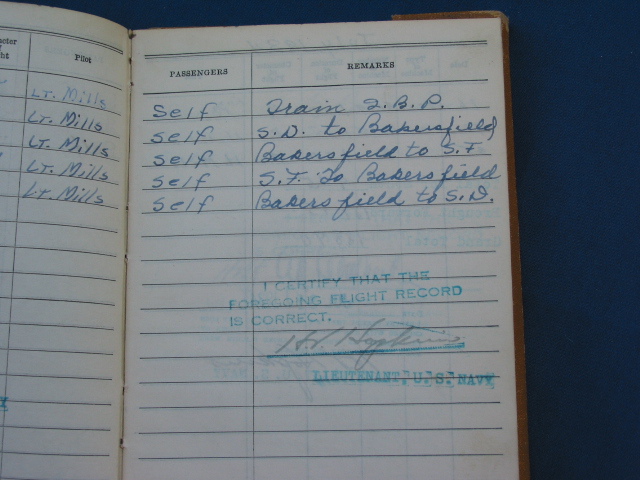 Pilot
PASSENGERS REMARKS
Lt. Mills Self Train I.B.P.
Lt. Mills Self S.D. to Bakersfield
Lt. Mills Self Bakersfield to S.F.
Lt. Mills Self S.F. To Bakersfield
Lt. Mills Self Bakersfield to S.D.
I CERTIFY THAT THE
FOREGOING FLIGHT RECORD
IS CORRECT.
LIEUTENANT, U.S. NAVY